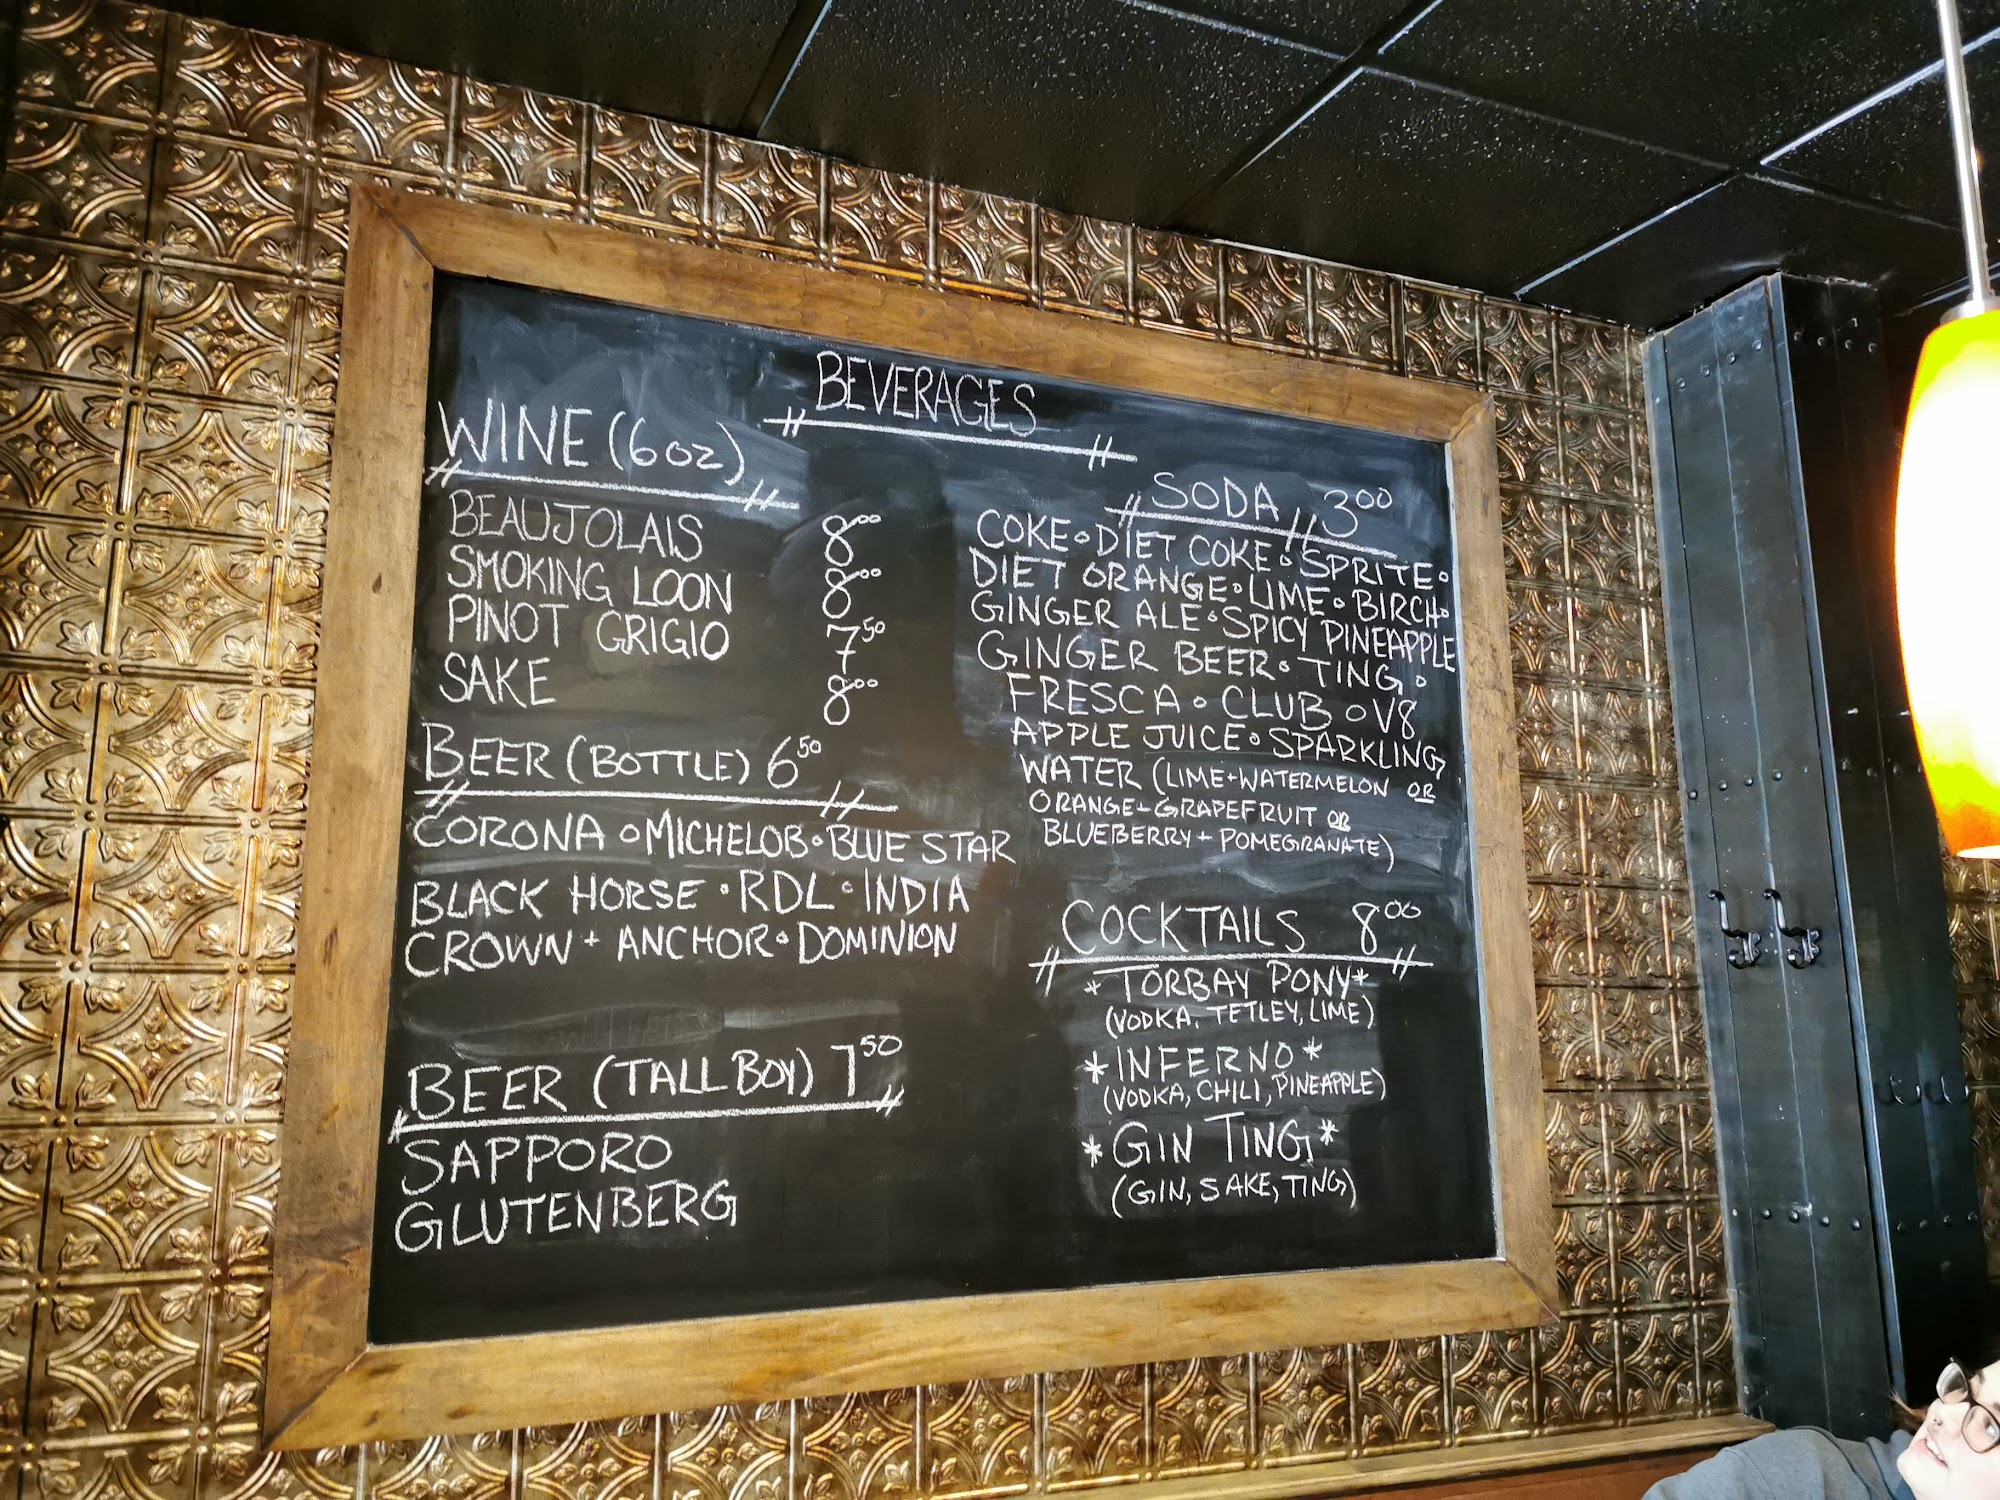 BEVERAGES
WINE (6 oz)
BEAUJOLAIS 8⁰⁰
SMOKING LOON 8⁰⁰
PINOT GRIGIO 7⁵⁰
SAKE 8⁰⁰
BEER (BOTTLE) 6⁵⁰
CORONA ∘ MICHELOB ∘ BLUE STAR
BLACK HORSE ∘ RDL ∘ INDIA
CROWN + ANCHOR ∘ DOMINION
BEER (TALL BOY) 7⁵⁰
SAPPORO
GLUTENBERG
SODA 3⁰⁰
COKE ∘ DIET COKE ∘ SPRITE ∘
DIET ORANGE ∘ LIME ∘ BIRCH ∘
GINGER ALE ∘ SPICY PINEAPPLE
GINGER BEER ∘ TING ∘
FRESCA ∘ CLUB ∘ V8
APPLE JUICE ∘ SPARKLING
WATER (LIME + WATERMELON OR
ORANGE + GRAPEFRUIT OR
BLUEBERRY + POMEGRANATE)
COCKTAILS 8⁰⁰
* TORBAY PONY *
(VODKA, TETLEY, LIME)
* INFERNO *
(VODKA, CHILI, PINEAPPLE)
* GIN TING *
(GIN, SAKE, TING)